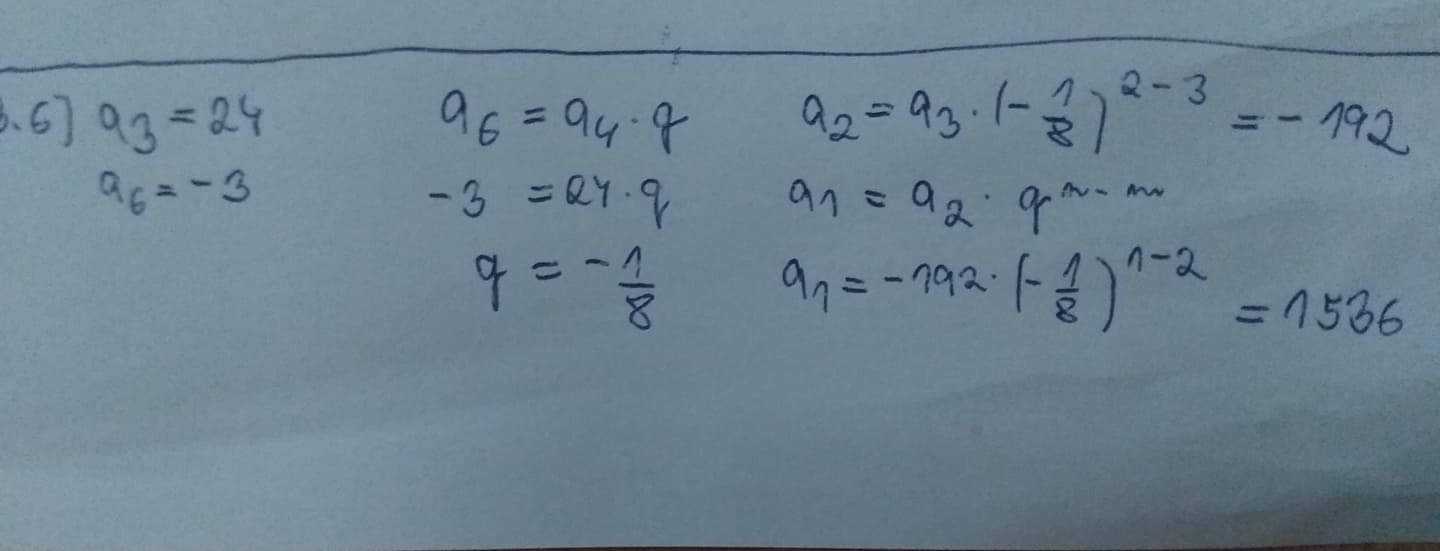 3.6) a3 = 24
a6 = -3
a6 = a4 · q
-3 = 24 · q
q = -1/8
a2 = a3 · (-1/8)^2-3 = -192
a1 = a2 · q^n-m
a1 = -192 · (-1/8)^1-2 = 1536